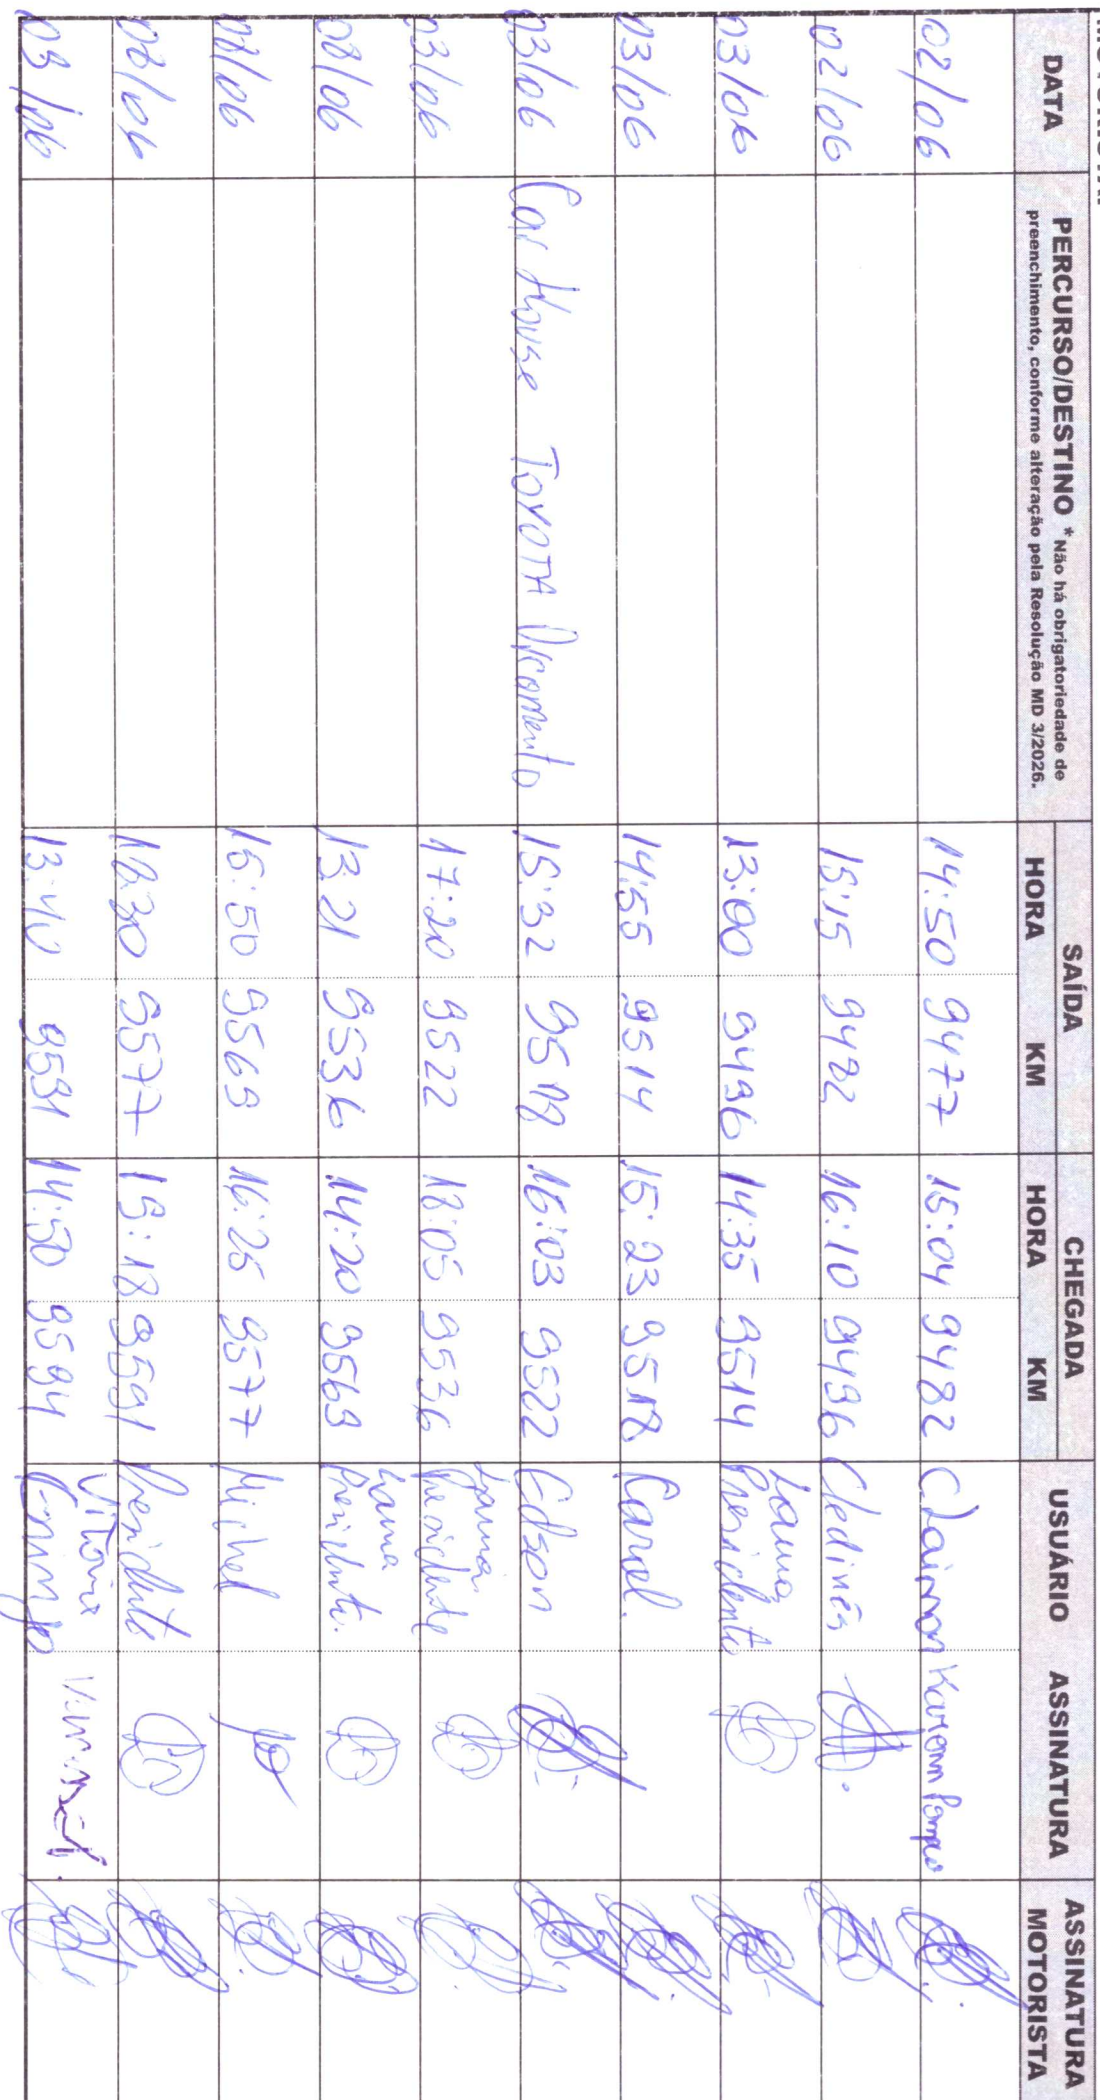 MOTORISTA
DATA PERCURSO/DESTINO * Não há obrigatoriedade de preenchimento, conforme alteração pela Resolução MD 3/2026. SAÍDA CHEGADA USUÁRIO ASSINATURA ASSINATURA MOTORISTA
HORA KM HORA KM
02/06 14:50 9477 15:04 9482
02/06 15:15 9482 16:10 9496 Cledinês
03/06 13:00 9496 14:35 9514 Presidente
03/06 14:55 9514 15:23 9518
03/06 Car House TOYOTA Orçamento 15:32 9518 16:03 9522 Edson
03/06 17:20 9522 18:05 9536 Presidente
08/06 13:21 9536 14:20 9569 Presidente.
08/06 15:50 9569 16:25 9577 Michel
08/06 18:30 9577 19:18 9591 Presidente
09/06 13:40 9591 14:50 9594 Vitoria